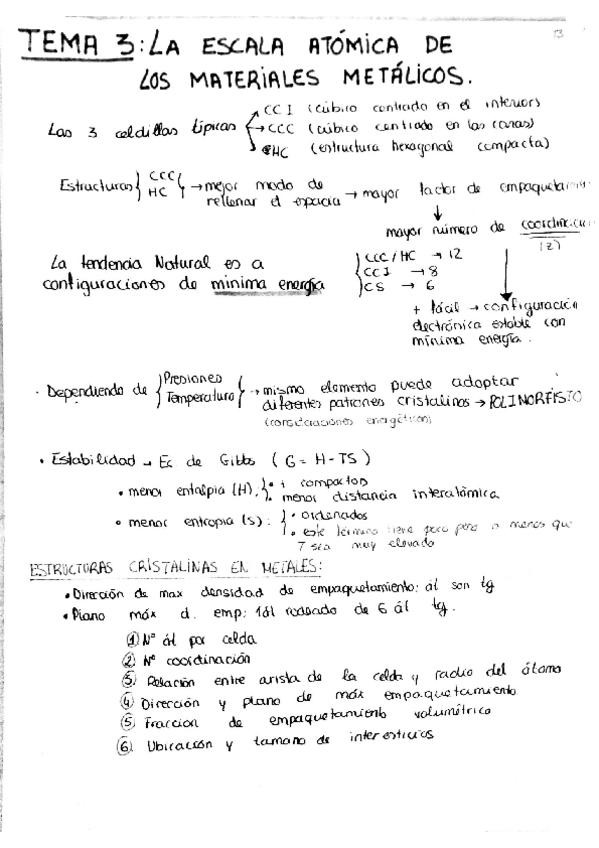 13
TEMA 3: LA ESCALA ATÓMICA DE
LOS MATERIALES METÁLICOS.
Las 3 celdillas típicas
CCI (cúbico centrado en el interior)
CCC (cúbico centrado en las caras)
HC (estructura hexagonal compacta)
Estructuras { CCC } → mejor modo de
HC rellenar el espacio → mayor factor de
mayor número de
(z)
La tendencia Natural es a
configuraciones de mínima energía
CCC/HC → 12
CCI → 8
CS → 6
+ fácil → configuración
electrónica estable con
mínima energía.
· Dependiendo de { Presiones
Temperatura } → mismo elemento puede adoptar
diferentes patrones cristalinos → POLIMORFISTO
(consideraciones energéticas)
• Estabilidad → Ec de Gibbs (G = H-TS)
• menor entalpia (H). { • + compactos
menor distancia interatómica
• menor entropia (s): { • ordenados
• este término tiene poco peso a menos que
T sea muy elevado
ESTRUCTURAS CRISTALINAS EN METALES:
• Dirección de max densidad de empaquetamiento: át son tg
• Plano máx d. emp: 1át rodeado de 6 át tg.
① Nº át por celda
② Nº coordinación
③ Relación entre arista de la celda y radio del átomo
④ Dirección y plano de máx empaquetamiento
⑤ Fraccion de empaquetamiento volumétrico
⑥ Ubicación y tamaño de intersticios